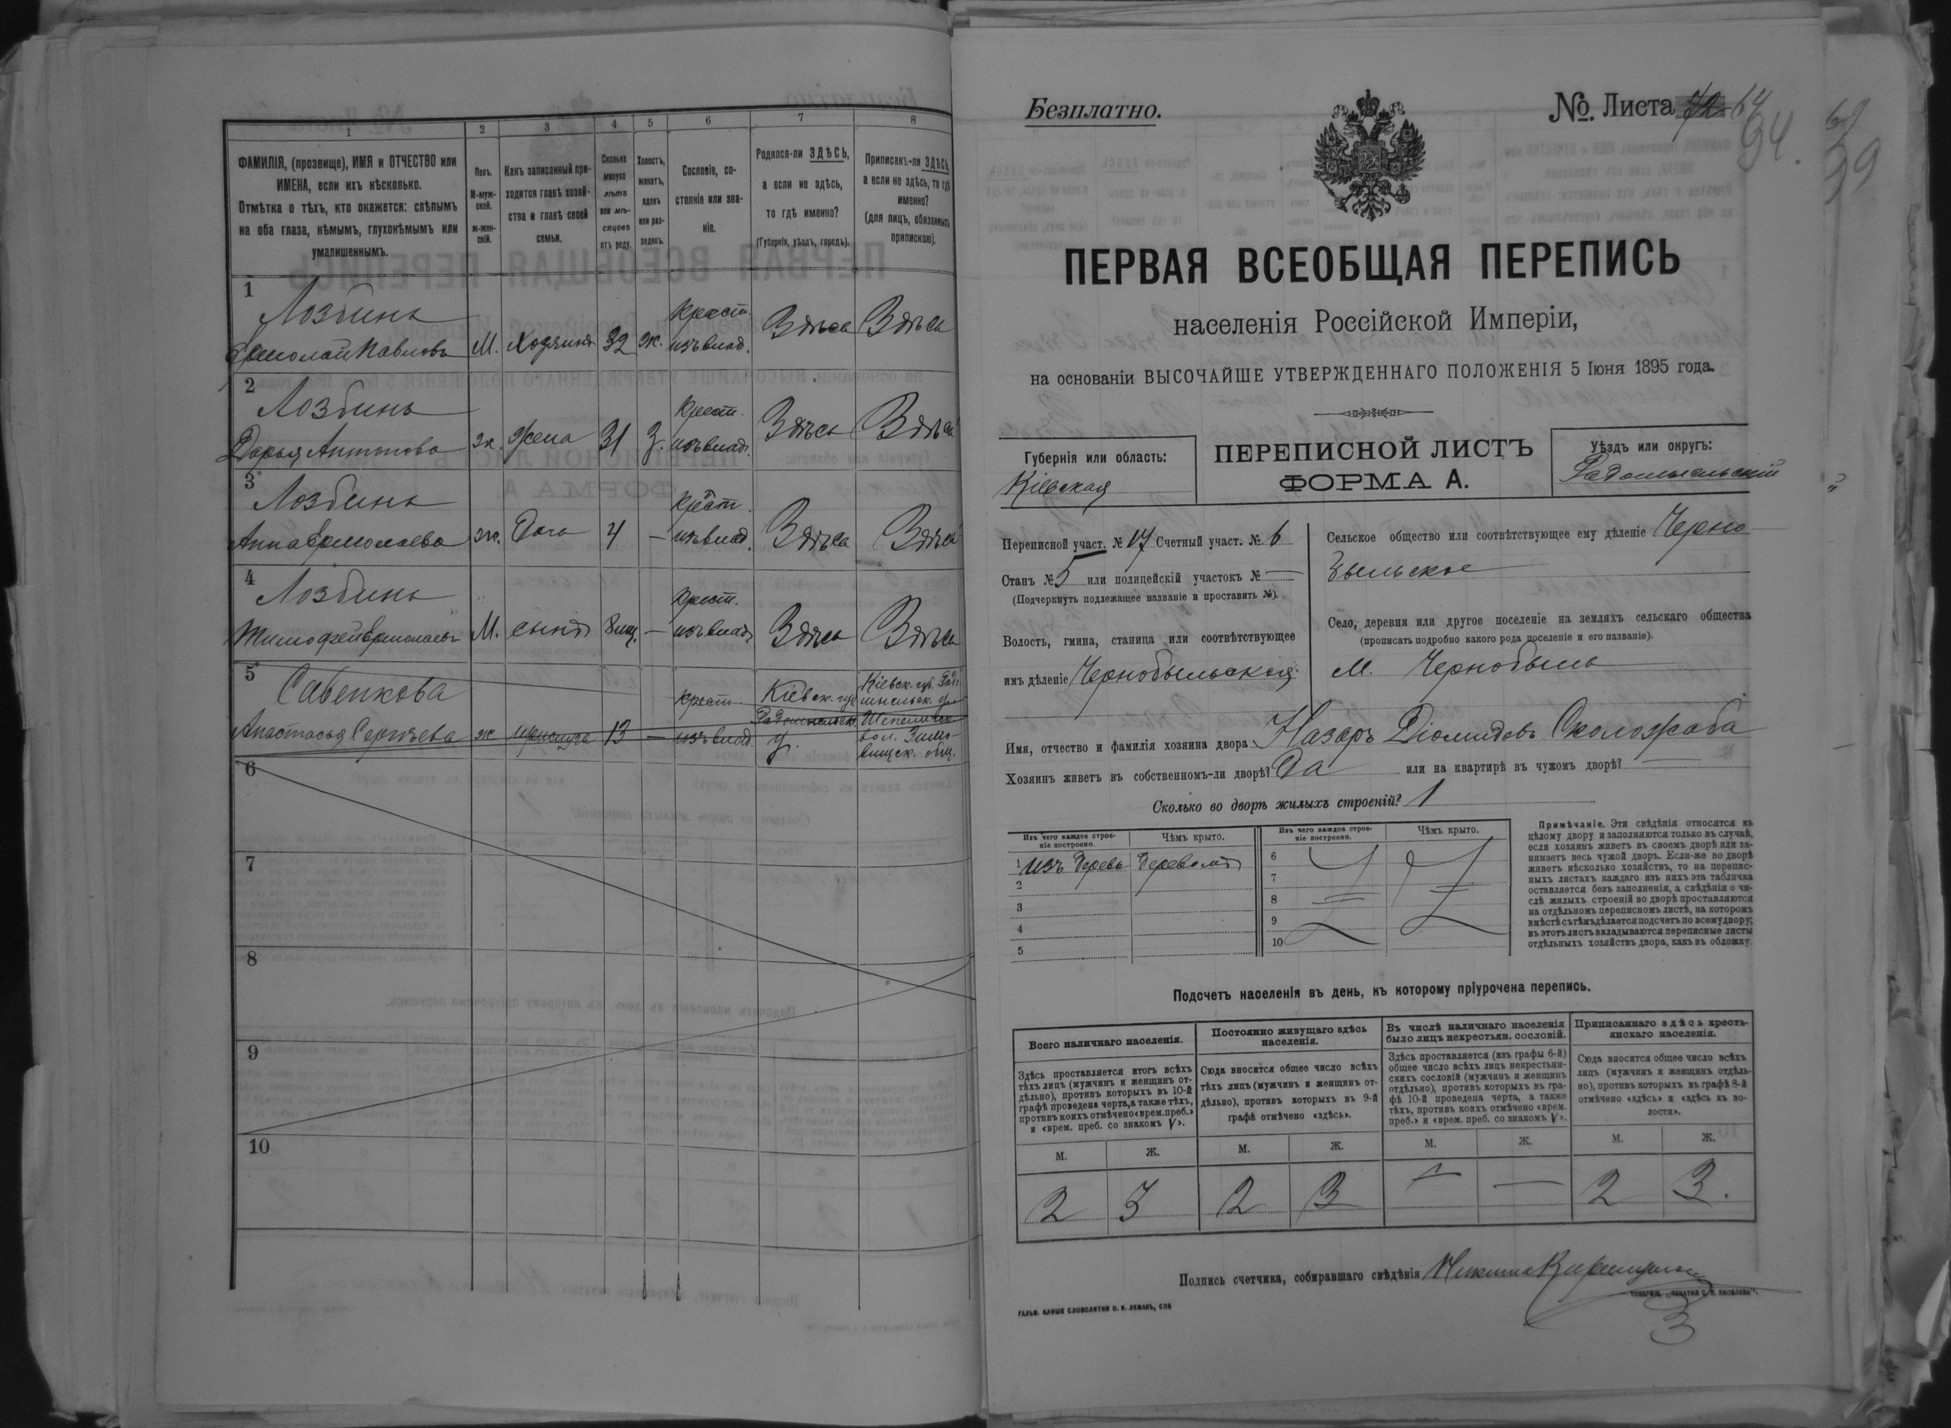 1
2
3
4
5
6
7
8
ФАМИЛІЯ, (прозвище), ИМЯ и ОТЧЕСТВО или
ИМЕНА, если ихъ нѣсколько.
Отмѣтка о тѣхъ, кто окажется: слѣпымъ
на оба глаза, нѣмымъ, глухонѣмымъ или
умалишеннымъ.
Полъ.
М-муж-
ской.
Ж-жен-
скій.
Какъ записанный при-
ходится главѣ хозяй-
ства и главѣ своей
семьи.
Сколько
минуло
лѣтъ
или мѣ-
сяцевъ
отъ роду.
Холостъ,
женатъ,
вдовъ
или раз-
веденъ.
Сословіе, со-
стояніе или зва-
ніе.
Родился-ли ЗДѢСЬ,
а если не здѣсь,
то гдѣ именно?
(Губернія, уѣздъ, городъ).
Приписанъ-ли ЗДѢСЬ,
а если не здѣсь, то гдѣ
именно?
(для лицъ, обязанныхъ
припискою).
1
Лозбинь
Ермолай Павловъ М. Хозяинъ 32 ж. крест. изъ влад. Здѣсь Здѣсь
2
Лозбинь
Дарья Антонова ж. жена 31 з. крест. изъ влад. Здѣсь Здѣсь
3
Лозбинь
Анна Ермолаева ж. Дочь 4 — крест. изъ влад. Здѣсь Здѣсь
4
Лозбинь
Тимофей Ермолаевъ М. сынъ 8 мц. — крест. изъ влад. Здѣсь Здѣсь
5
Савенкова
Анастасья Сергѣева ж. прислуга 13 — крест. изъ влад. Кіевск. губ. Радомысльск. у.
Кіевск. губ. Радо-
мысльск. у.
вол.
общ.
6
7
8
9
10
Безплатно.
№. Листа 64
94.
ПЕРВАЯ ВСЕОБЩАЯ ПЕРЕПИСЬ
населенія Россійской Имперіи,
на основаніи ВЫСОЧАЙШЕ УТВЕРЖДЕННАГО ПОЛОЖЕНІЯ 5 Іюня 1895 года.
Губернія или область:
Кіевская
ПЕРЕПИСНОЙ ЛИСТЪ
ФОРМА А.
Уѣздъ или округъ:
Радомысльскій
Переписной участ. № 17 Счетный участ. № 6
Станъ № 5 или полицейскій участокъ № —
(Подчеркнуть подлежащее названіе и проставить №).
Волость, гмина, станица или соотвѣтствующее
имъ дѣленіе Чернобыльская
Сельское общество или соотвѣтствующее ему дѣленіе Черно
быльское
Село, деревня или другое поселеніе на земляхъ сельскаго общества
(прописать подробно какого рода поселеніе и его названіе).
М. Чернобыль
Имя, отчество и фамилія хозяина двора Назаръ Діомидовъ Околожаба
Хозяинъ живетъ въ собственномъ-ли дворѣ? Да или на квартирѣ въ чужомъ дворѣ? —
Сколько во дворѣ жилыхъ строеній? 1
Изъ чего каждое строе-
ніе построено.
Чѣмъ крыто.
Изъ чего каждое строе-
ніе построено.
Чѣмъ крыто.
1 изъ дерева деревомъ
2
3
4
5
6
7
8
9
10
Примѣчаніе. Эти свѣдѣнія относятся къ
цѣлому двору и заполняются только въ случаѣ,
если хозяинъ живетъ въ своемъ дворѣ или за-
нимаетъ весь чужой дворъ. Если-же во дворѣ
живетъ нѣсколько хозяйствъ, то на перепис-
ныхъ листахъ каждаго изъ нихъ эта табличка
оставляется безъ заполненія, а свѣдѣнія о чи-
слѣ жилыхъ строеній во дворѣ проставляются
на отдѣльномъ переписномъ листѣ, на которомъ
вмѣстѣ съ тѣмъ дѣлается подсчетъ по всему двору;
въ этотъ листъ вкладываются переписные листы
отдѣльныхъ хозяйствъ двора, какъ въ обложку.
Подсчетъ населенія въ день, къ которому пріурочена перепись.
Всего наличнаго населенія.
Здѣсь проставляется итогъ всѣхъ
тѣхъ лицъ (мужчинъ и женщинъ от-
дѣльно), противъ которыхъ въ 10-й
графѣ проведена черта, а также тѣхъ,
противъ коихъ отмѣчено «врем. преб.»
и «врем. преб. со знакомъ V».
Постоянно живущаго здѣсь
населенія.
Сюда вносится общее число всѣхъ
тѣхъ лицъ (мужчинъ и женщинъ от-
дѣльно), противъ которыхъ въ 9-й
графѣ отмѣчено «здѣсь».
Въ числѣ наличнаго населенія
было лицъ некрестьян. сословій.
Здѣсь проставляется (изъ графы 6-й)
общее число всѣхъ лицъ некрестьян-
скихъ сословій (мужчинъ и женщинъ
отдѣльно), противъ которыхъ въ гра-
фѣ 10-й проведена черта, а также
тѣхъ, противъ коихъ отмѣчено «врем.
преб.» и «врем. преб. со знакомъ V».
Приписаннаго здѣсь кресть-
янскаго населенія.
Сюда вносится общее число всѣхъ
лицъ (мужчинъ и женщинъ отдѣль-
но), противъ которыхъ въ графѣ 8-й
отмѣчено «здѣсь» и «здѣсь къ во-
лости».
М. Ж. М. Ж. М. Ж. М. Ж.
2 3 2 3 — — 2 3.
Подпись счетчика, собиравшаго свѣдѣнія Никита
ГАЛЬВ. КЛИШЕ СЛОВОЛИТНИ О. И. ЛЕМАНЪ, СПБ
3